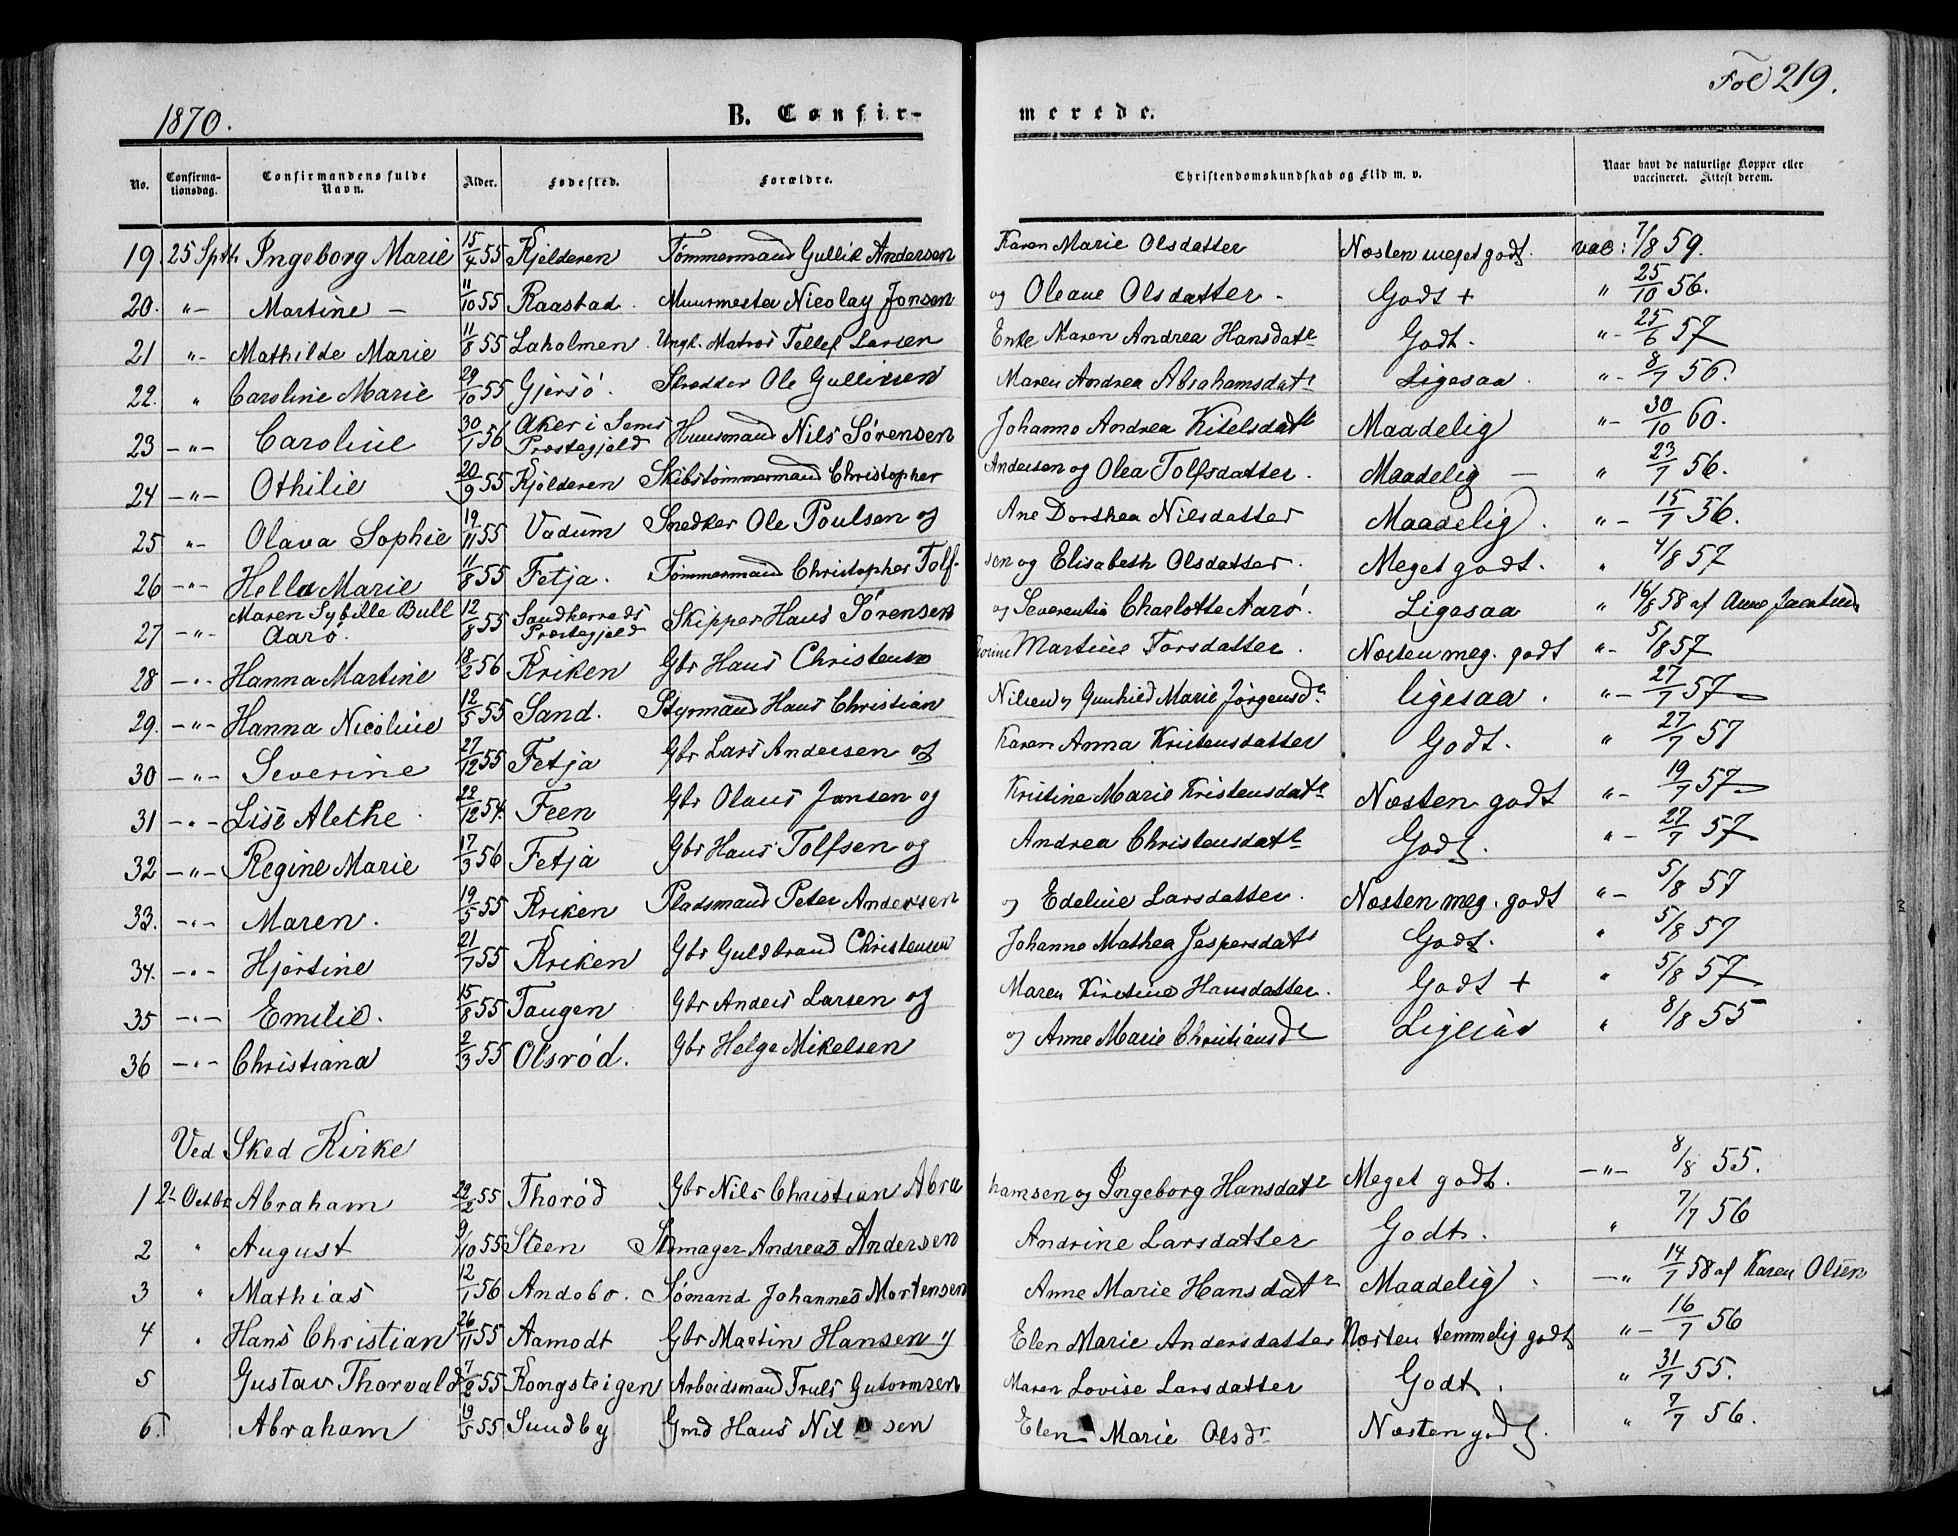 Fol 219.
1870.
B. Confir-
merede.
No. Confirmationsdag. Confirmandens fulde Navn. Alder. Fødested. Forældre. Christendomskundskab og Flid m. v. Naar havt de naturlige Kopper eller vaccineret. Attest derom.
19. 25 Septb. Ingeborg Marie 15/4 55 Kjelderen Tømmermand Gullik Andersen Karen Marie Olsdatter Næsten meget godt. vac: 7/8 59.
20. "- Martine - 11/10 55 Raastad. Muurmester Nicolay Jonsen og Oleane Olsdatter - Godt + " 25/10 56.
21 "- Mathilde Marie 11/8 55 Laholmen. Ungk. Matros Tellef Larsen Enke Maren Andrea Hansdatr Godt. "- 25/6 57
22. " Caroline Marie 29/10 55 Gjersø. Skrædder Ole Gulliksen Maren Andrea Abrahamsdatr Ligesaa. "- 8/7 56.
23 -"- Caroline 30/1 56 Aker i Sems Præstegjeld Huusmand Nils Sørensen Johanne Andrea Kitelsdatr Maadelig "- 30/10 60.
24 -"- Othilie 20/9 55 Kjølderen Skibstømmermand Christopher Andersen og Olea Tolfsdatter. Maadelig - " 23/7 56.
25 "- Olava Sophie 19/11 55 Vadum Snedker Ole Poulsen og Ane Dorthea Nilsdatter Maadelig. "- 15/7 56.
26 -"- Hella Marie 11/8 55 Fetja. Tømmermand Christopher Tolf- sen og Elisabeth Olsdatter. Meget godt. " 4/8 57
27 -"- Maren Sybille Bull Aarø. 12/8 55 Sandherreds Præstegjeld Skipper Hans Sørensen og Severentia Charlotte Aarø. Ligesaa " 16/8 58 af Anne
28 -"- Hanna Martine 18/2 56 Kriken Gbr Hans Christensen Martine Torsdatter. Næsten meg. godt "- 5/8 57
29. -"- Hanna Nicoline 12/5 55 Sand. Styrmand Hans Christian Nilsen og Gunhild Marie Jørgensdr ligesaa. "- 27/7 57
30 -"- Severine 27/12 55 Fetja Gbr Lars Andersen og Karen Anna Kristensdatter Godt. " 27/7 57
31 -"- Lise Alethe. 22/12 54. Feen Gbr Olaus Jansen og Kristine Marie Kristensdatr Næsten godt "- 19/7 57
32 -"- Regine Marie 17/3 56 Fetja Gbr Hans Tolfsen og Andrea Christensdatr Godt. "- 27/7 57
33. -"- Maren. 19/5 55 Kriken Pladsmand Peter Andersen og Edeline Larsdatter. Næsten meg. godt "- 5/8 57
34. -"- Hjørtine 21/7 55 Kriken Gbr Guldbrand Christensen Johanne Mathea Jespersdatr Godt. " 5/8 57
35 -"- Emilie. 15/8 55 Tangen Gbr Anders Larsen og Maren Kirstine Hansdatter. Godt + " 5/8 57
36 -"- Christiana 2/3 55 Olsrød. Gbr Helge Mikelsen og Anne Marie Christiansdr Ligesaa " 8/8 55
Ved Skee Kirke
1 2- Octbr Abraham 22/2 55 Thorød Gbr Nils Christian Abra hamsen og Ingeborg Hansdatr Meget godt. -"- 8/8 55.
2 " August 9/10 55 Steen Skomager Andreas Andersen Andrine Larsdatter Godt. " 7/7 56
3 " Mathias 12/1 56 Andebo. Sømand Johannes Mortensen Anne Marie Hansdatr Maadelig. -" 14/7 58 af Karen Olsen
4 " Hans Christian 26/11 55 Aamodt Gbr Martin Hansen og Elen Marie Andersdatter Næsten temmelig godt "- 16/7 56
5 Gustav Thorvald 7/2 55 Kongsteigen Arbeidsmand Truls Gutormsen Maren Lovise Larsdatter Godt. " 31/7 55.
6. Abraham 19/5 55 Sundby Gmd Hans Nilsen Elen Marie Olsdr Næsten godt. " 7/7 56.